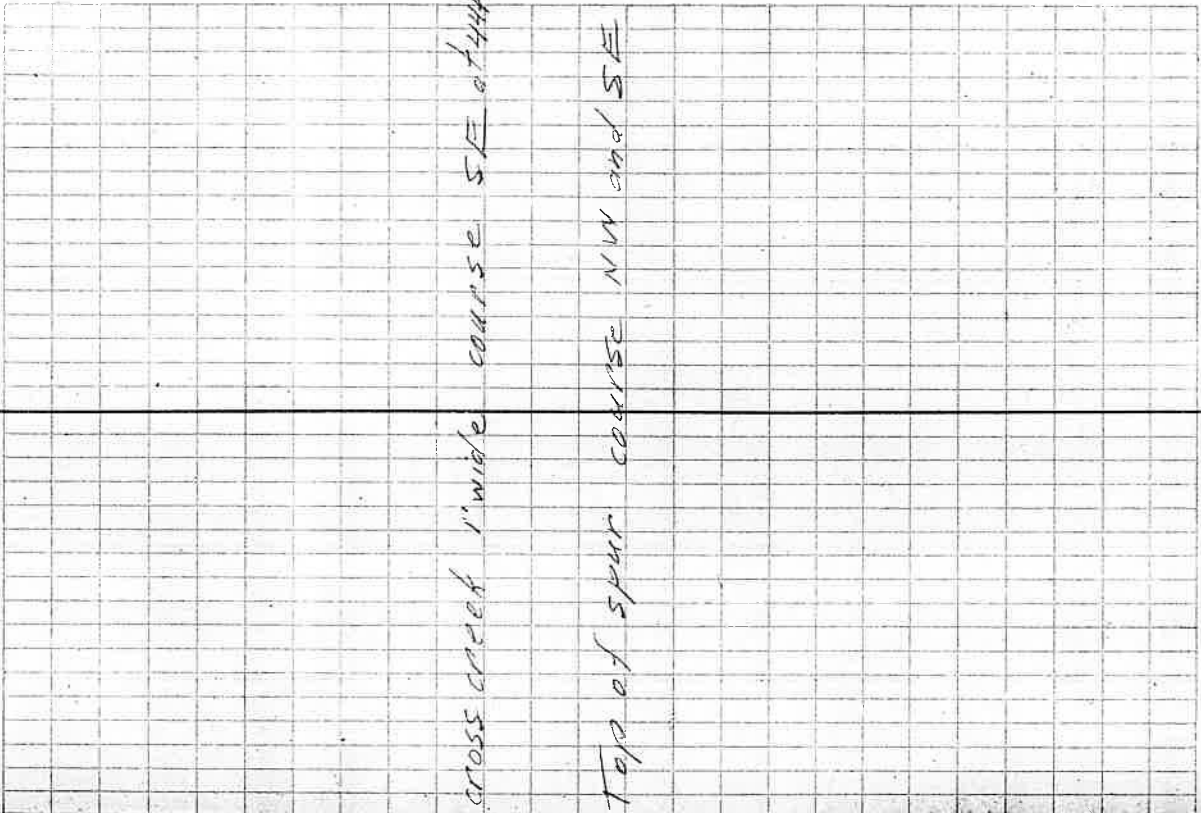 cross creek 1" wide course SE at
Top of spur course NW and SE